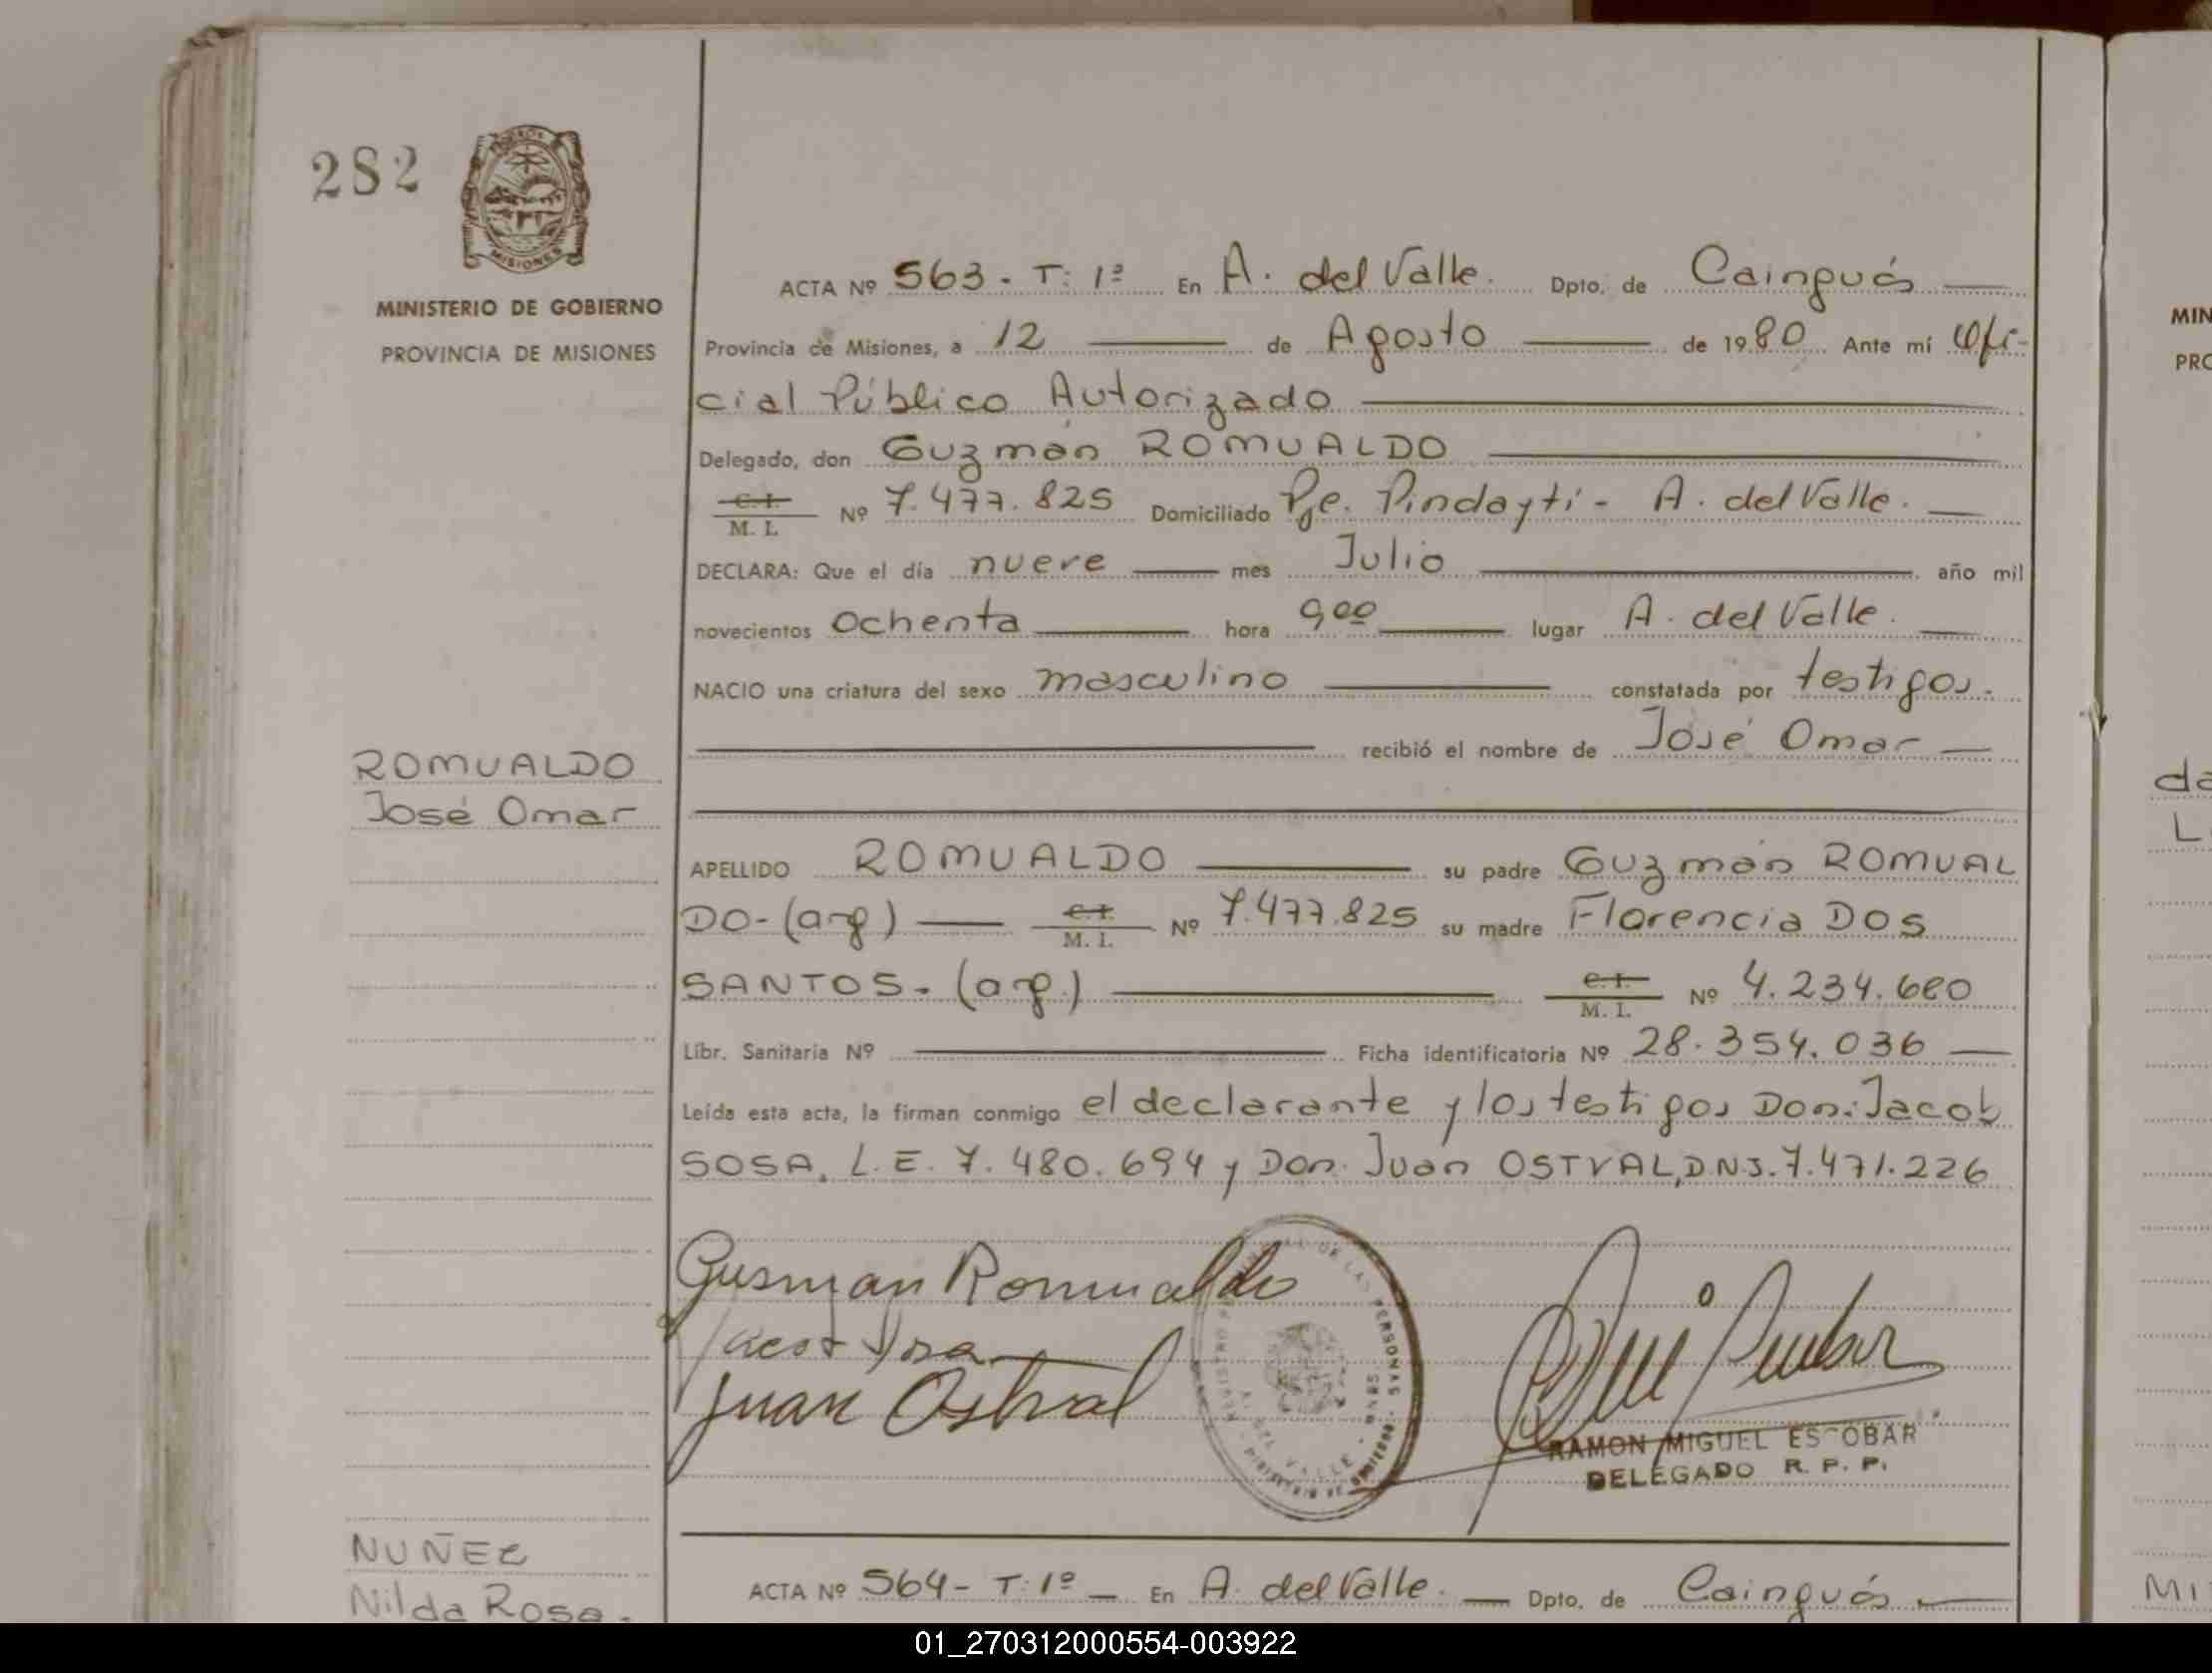 282
MISIONES
MINISTERIO DE GOBIERNO
PROVINCIA DE MISIONES
ROMUALDO
José Omar
ACTA Nº 563 - T: 1º En A. del Valle. Dpto. de Cainguás
Provincia de Misiones, a 12 de Agosto de 1980 Ante mí Ofi-
cial Público Autorizado
Delegado, don Guzmán ROMUALDO
C. I.
M. I. Nº 7.477.825 Domiciliado Pje. Pindaytí - A. del Valle.
DECLARA: Que el día nueve mes Julio año mil
novecientos Ochenta hora 9,00 lugar A. del Valle.
NACIO una criatura del sexo masculino constatada por testigos.
recibió el nombre de José Omar
APELLIDO ROMUALDO su padre Guzmán ROMUAL
DO- (arg) C. I. M. I. Nº 7.477.825 su madre Florencia DOS
SANTOS. - (arg.) C. I. M. I. Nº 4.234.680
Libr. Sanitaria Nº Ficha identificatoria Nº 28.354.036
Leída esta acta, la firman conmigo el declarante y los testigos Don: Jacob
SOSA, L.E. 7.480.694 y Don. Juan OSTVAL, D.N.I. 7.471.226
Gusman Romualdo
Juan Ostval
RAMON MIGUEL ESCOBAR
DELEGADO R. P. P.
NUÑEZ
Nilda Rosa.
ACTA Nº 564 - T: 1º En A. del Valle. Dpto. de Cainguás
MIN
PRO
da
MI
01_270312000554-003922